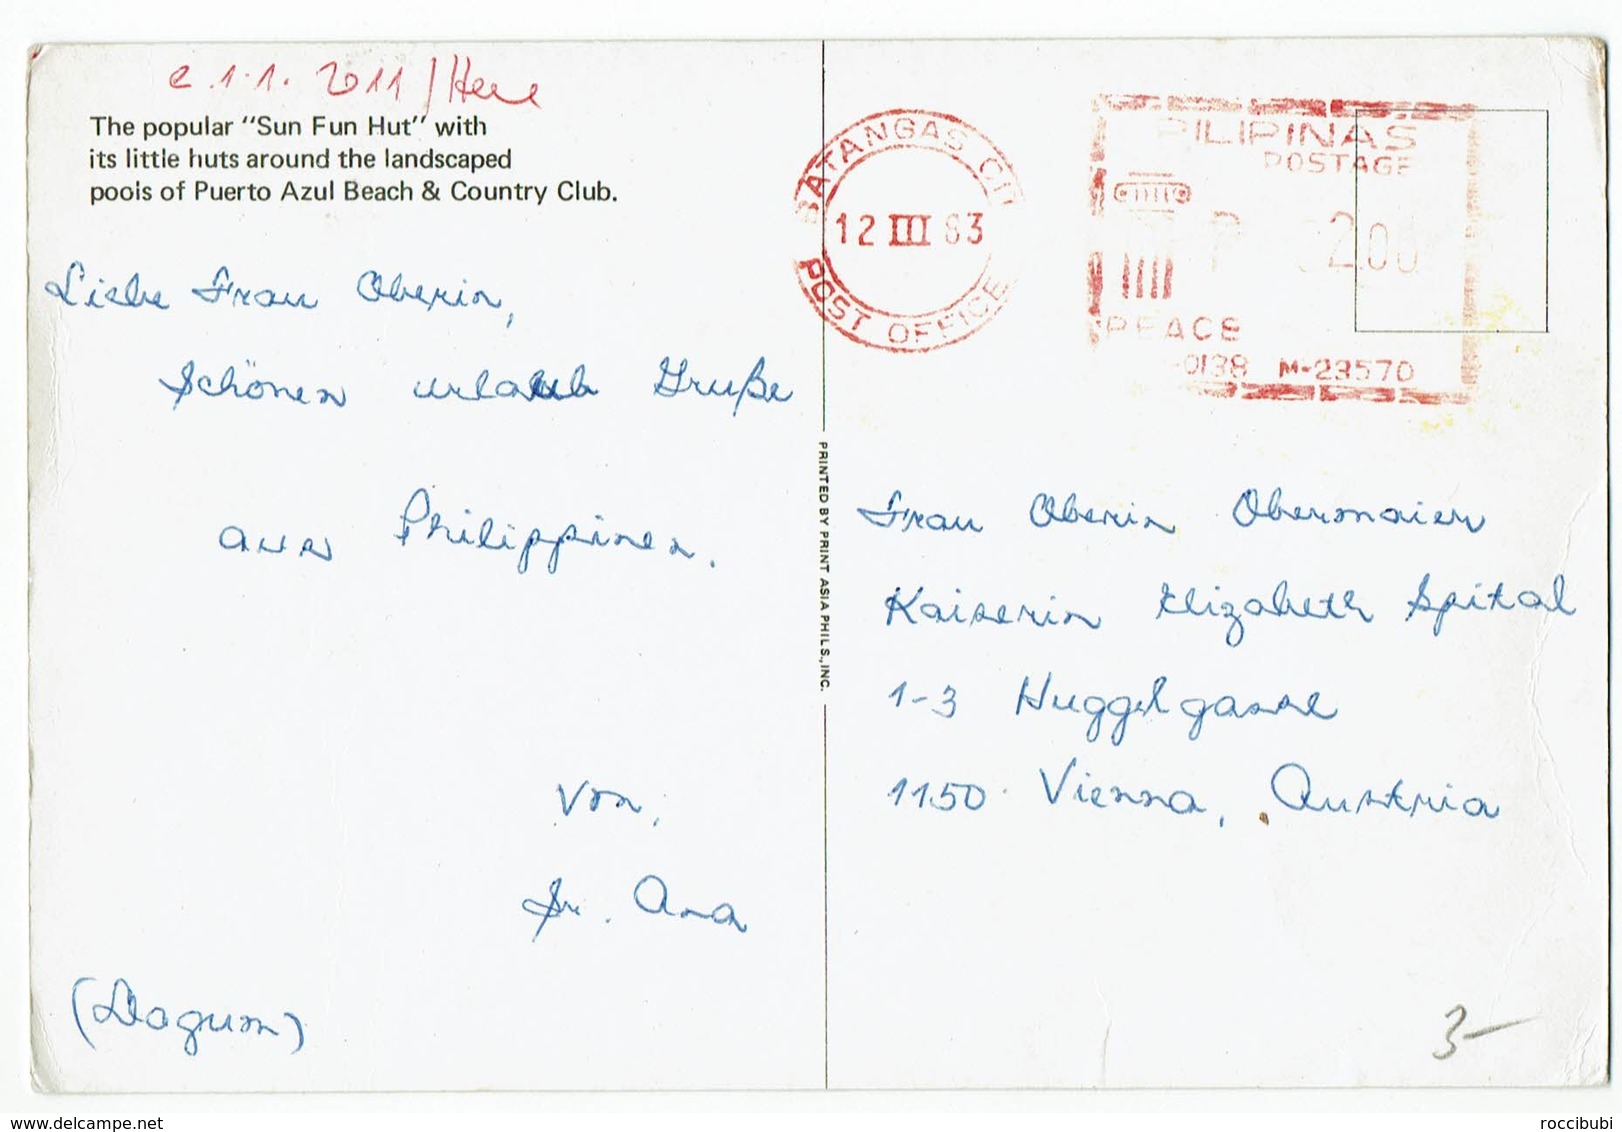 The popular "Sun Fun Hut" with
its little huts around the landscaped
pools of Puerto Azul Beach & Country Club.
Liebe Frau Oberin,
Schönen urlaub Gruße
aus Philippinen.
Von,
Sr. Ana
(Dagum)
PRINTED BY PRINT ASIA PHILS., INC.
BATANGAS CITY
12 III 83
POST OFFICE
PILIPINAS
POSTAGE
P 2.00
PEACE
-0138 M-23570
Frau Oberin Obermaier
Kaiserin Elizabeth Spital
1-3 Huggelgasse
1150 Vienna, Austria
3-
roccibubi